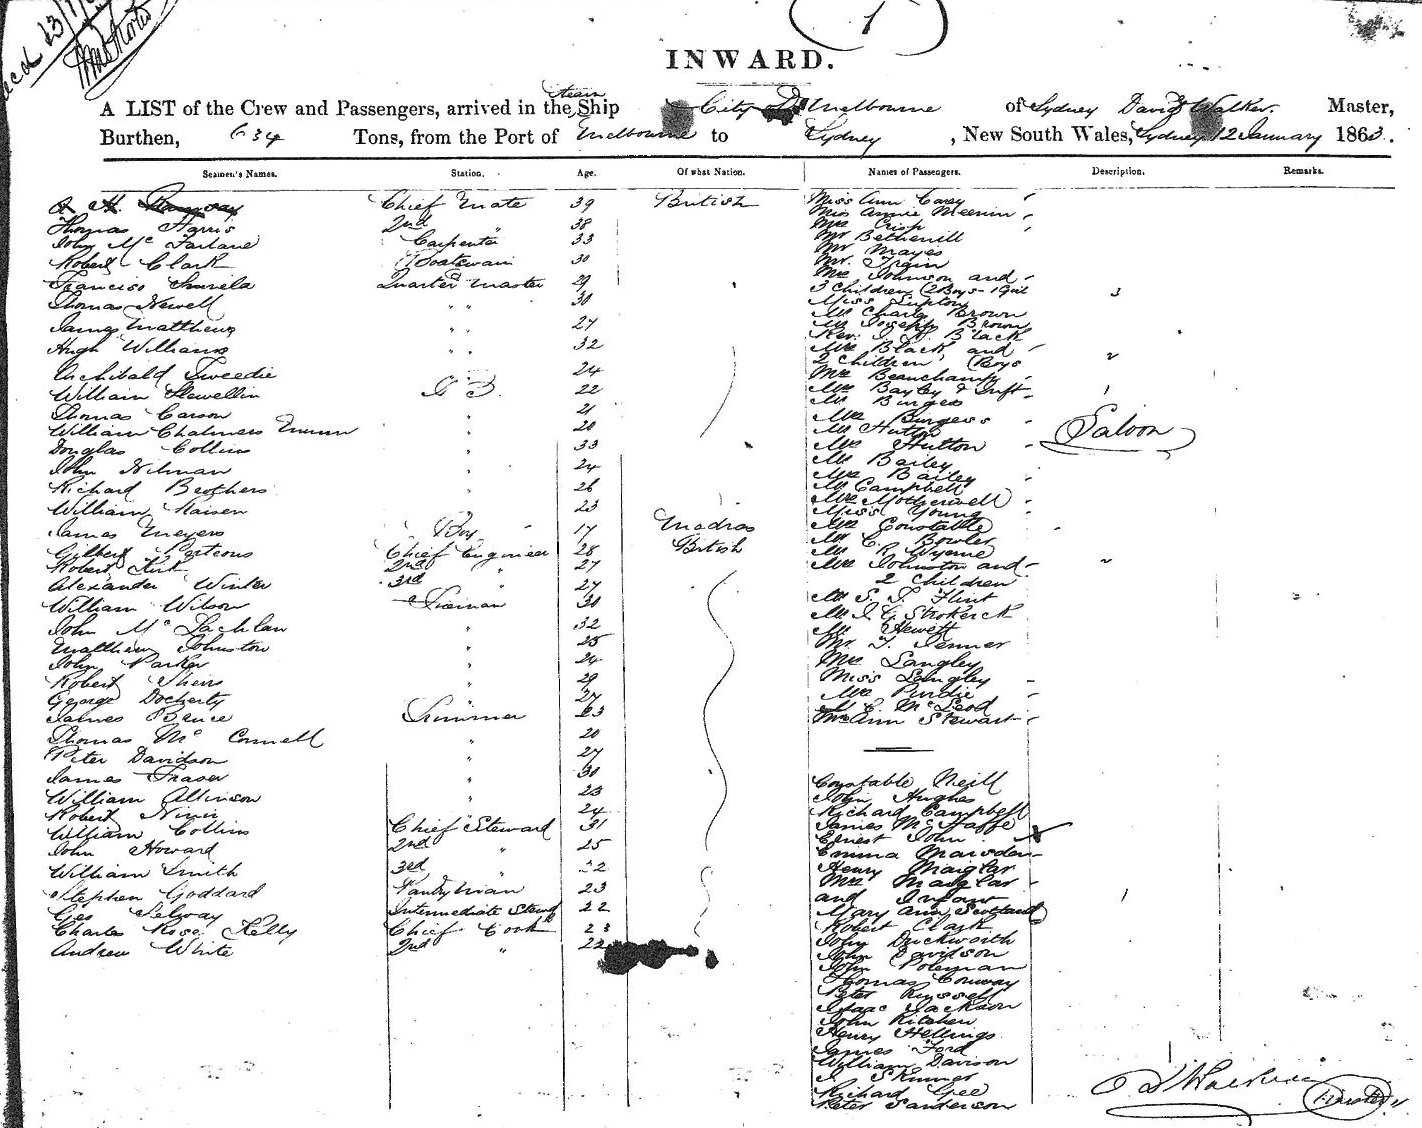 1
INWARD.
A LIST of the Crew and Passengers, arrived in the Steam Ship City of Melbourne of Sydney David Walker. Master,
Burthen, 634 Tons, from the Port of Melbourne to Sydney, New South Wales, Sydney 12 January 1863.
Seamen's Names. Station. Age. Of what Nation. Names of Passengers. Description. Remarks.
Chief Mate 39 British
Thomas Harris 2nd " 38
John McFarlane Carpenter 33
Robert Clark Boatswain 30
Francisco Quarter Master 29
Thomas Newell " " 30
James Matthews " " 27
Hugh Williams " " 32
Archibald Tweedie 24
William Llewellin 22
Thomas Carson " 21
William Chalmers " 20
Douglas Collins " 33
John " 24
Richard Brothers " 26
William " 23
James Meyers Boy 17 Madras
Gilbert Porteous Chief Engineer 28 British
Robert Kirk 2nd " 27
Alexander Winter 3rd " 27
William Wilson Fireman 30
John McLachlan " 32
Matthew Johnston " 25
John Parker " 24
Robert " 29
George Docherty " 27
James Bruce Trimmer 23
Thomas McConnell " 20
Peter Davidson " 27
James Fraser " 30
William Allinson " 23
Robert 24
William Collins Chief Steward 31
John Howard 2nd " 25
William Smith 3rd " 22
Stephen Goddard Pantryman 23
Geo Selway Intermediate Stewd 22
Charles Rose Kelly Chief Cook 23
Andrew White 2nd " 22
Miss Ann Carey
Miss Annie
Mrs Crisp
Mr
Mr Mayes
Mr.
Mrs Johnson and
3 Children (2 Boys - 1 Girl 3
Miss Lupton
Mr Charles Brown
Mr Joseph Brown
Rev. J. Black
Mrs Black and
2 Children (Boys 2
Mrs Beauchamp
Mrs Bayley & Inft 1
Mr Burgess
Mrs Burgess
Mr Hutton
Mrs Hutton
Saloon
Mr Bailey
Mrs Bailey
Mr Campbell
Mrs Motherwell
Miss Young
Mrs Constable
Mr C. Bowler
Mr R. Wynne
Mrs Johnston and
2 Children 2
Mr S. T. Flint
Mr J. C.
Mr Hewett
Mr. T. Jenner
Mrs Langley
Miss Langley
Mrs Purdie
McLeod
Ann Stewart
Constable Neill
John Hughes
Richard Campbell
James
Ernest John
Emma Marsden
Henry
Mrs
and Infant 1
Mary Ann Scotland
Robert Clark
John Duckworth
John Davidson
John Poleman
Thomas Conway
Peter Russell
Isaac Jackson
John Kitchen
Henry Hellings
James Ford
William Davison
J. Skinner
Richard Gee
Peter Sanderson
D Walker
Master